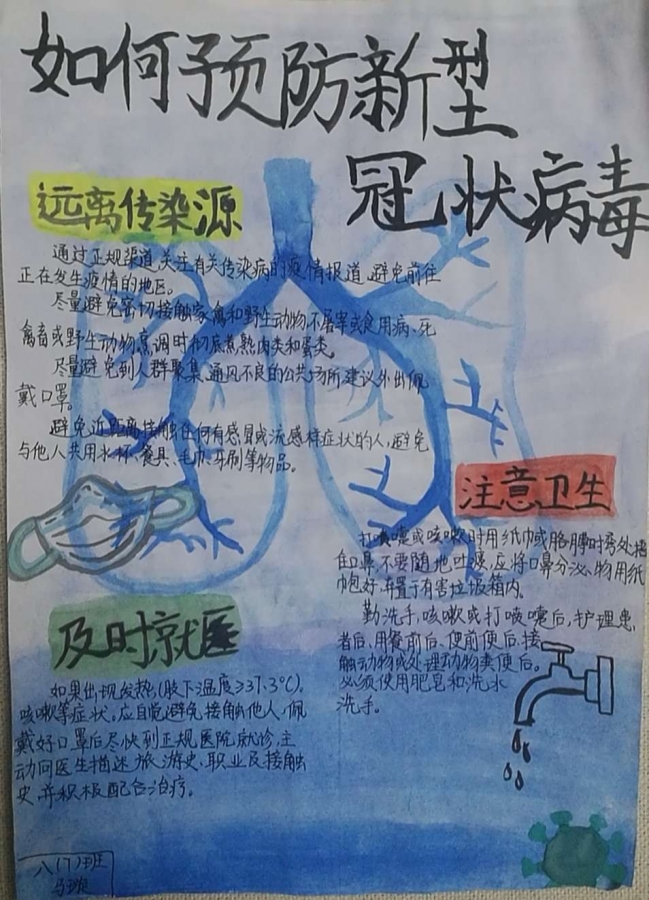 如何预防新型
冠状病毒
远离传染源
通过正规渠道关注有关传染病的疫情报道,避免前往
正在发生疫情的地区。
尽量避免密切接触家禽和野生动物,不屠宰或食用病、死
禽畜或野生动物,烹调时彻底煮熟肉类和蛋类。
尽量避免到人群聚集、通风不良的公共场所,建议外出佩
戴口罩。
避免近距离接触任何有感冒或流感样症状的人,避免
与他人共用水杯、餐具、毛巾、牙刷等物品。
注意卫生
打喷嚏或咳嗽时用纸巾或胳膊肘弯处捂
住口鼻,不要随地吐痰,应将口鼻分泌物用纸
巾包好,弃置于有害垃圾箱内。
勤洗手,咳嗽或打喷嚏后,护理患
者后,用餐前后、便前便后、接
触动物或处理动物粪便后。
必须使用肥皂和洗水
洗手。
及时就医
如果出现发热(腋下温度≥37.3°C)、
咳嗽等症状,应自觉避免接触他人,佩
戴好口罩后尽快到正规医院就诊,主
动向医生描述旅游史、职业及接触
史,并积极配合治疗。
八(7)班
马璇